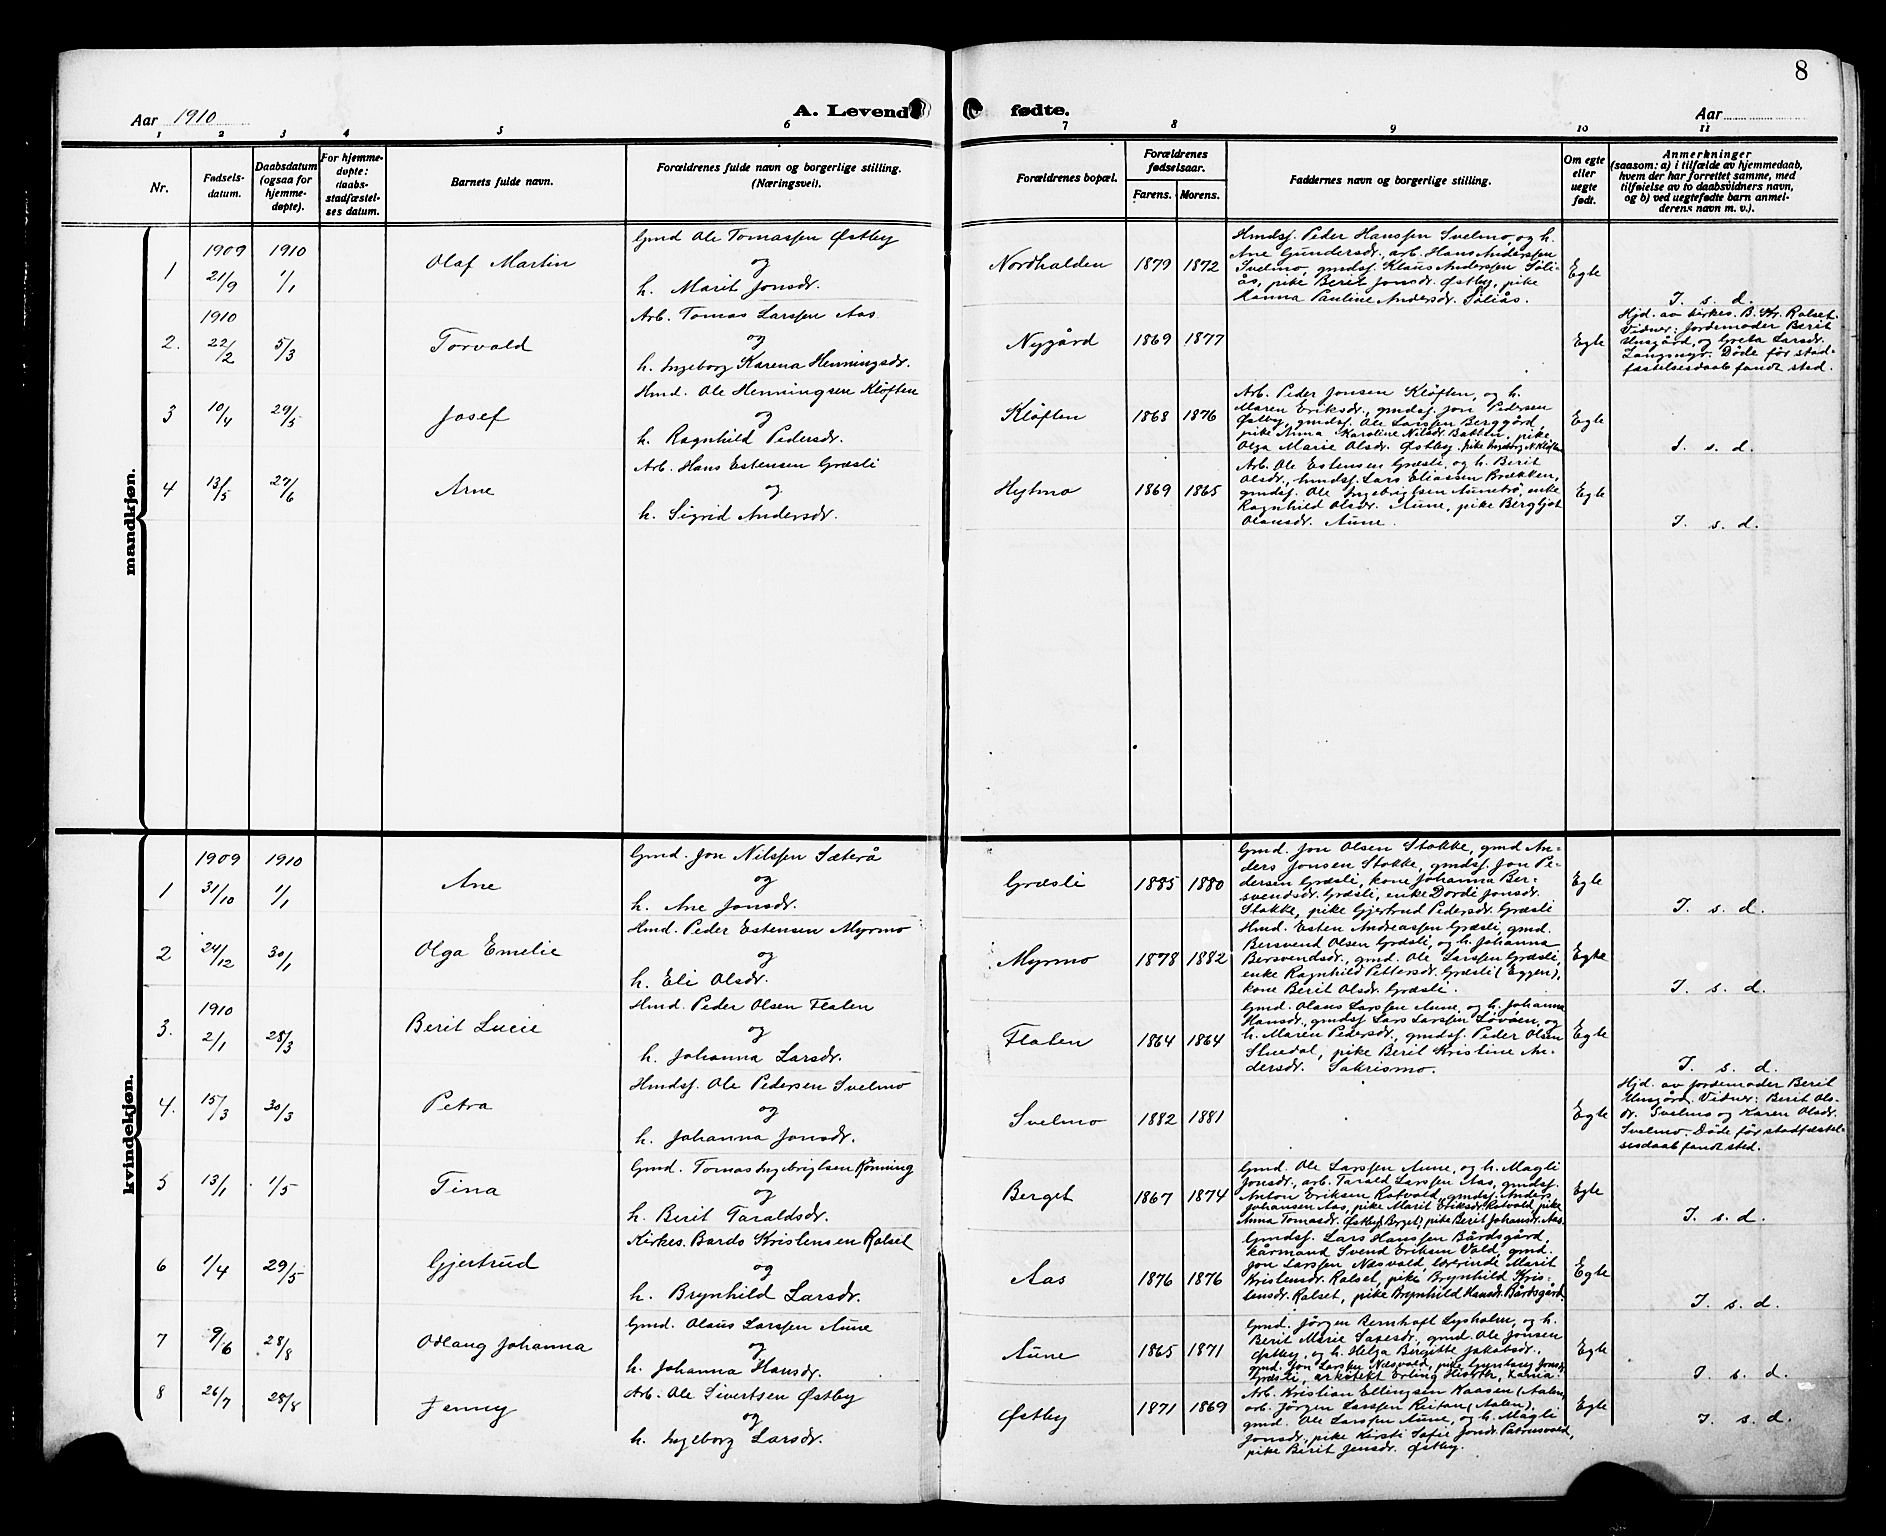 8
Aar 1910
A. Levende
fødte.
Aar
1 2 3 4 5 6 7 8 9 10 11
Nr.
Fødsels-
datum.
Daabsdatum
(ogsaa for
hjemme-
døpte).
For hjemme-
døpte:
daabs-
stadfæstel-
ses datum.
Barnets fulde navn.
Forældrenes fulde navn og borgerlige stilling.
(Næringsvei).
Forældrenes bopæl.
Forældrenes
fødselsaar.
Farens. Morens.
Faddernes navn og borgerlige stilling.
Om egte
eller
uegte
født.
Anmerkninger
(saasom: a) i tilfælde av hjemmedaab,
hvem der har forrettet samme, med
tilføielse av to daabsvidners navn,
og b) ved uegtefødte barn anmel-
derens navn m. v.).
mandkjøn.
1
1909
21/9
1910
1/1
Olaf Martin
Gmd Ole Tomassen Østby
og
h. Marit Jonsdr.
Nordhalden
1879 1872
Hmdsf. Peder Hanssen Svelmo, og h.
Ane Gundersdr., arb. Hans Anderssen
Svelmo, gmdsf. Klaus Anderssen Søli-
ås, pike Berit Jonsdr. Østby, pike
Hanna Pauline Andersdr. Søliås.
Egte
I. s. d.
2.
1910
22/2
5/3
Torvald
Arb. Tomas Larssen Aas
og
h. Ingeborg Karena Henningsdr.
Nygård
1869 1877
Egte
Hjd. av kirkes. B. Kr. Rolset.
Vidner: Jordemoder Berit
Unsgård, og Greta Larsdr.
Langmyr. Døde før stad-
fæstelsesdaab fandt sted.
3
10/4
29/5
Josef
Hmd. Ole Henningsen Kløften
og
h. Ragnhild Pedersdr.
Kløften
1868 1876
Arb. Peder Jonsen Kløften, og h.
Maren Eriksdr., gmdsf. Jon Pedersen
Østby, gmdsf. Ole Larssen Berggård,
pike Anna Karoline Nilsdr. Bakken, pike
Olga Marie Olsdr. Østby, pike Ingeborg N. Kløften
Egte
I. s. d.
4
13/5
27/6
Arne
Arb. Hans Estensen Græsli
og
h. Sigrid Andersdr.
Hyltmo
1869 1865
Arb. Ole Estensen Græsli, og h. Berit
Olsdr., hmdsf. Lars Eliassen Brækken,
gmdsf. Ole Ingebrigtsen Aunetrø, enke
Ragnhild Olsdr. Aune, pike Bergljot
Olausdr. Aune.
Egte
I. s. d.
kvindekjøn.
1
1909
31/10
1910
1/1
Ane
Gmd. Jon Nilssen Sæterå
og
h. Ane Jonsdr.
Græsli
1885 1880
Gmd. Jon Olsen Stokke, gmd An-
ders Jonsen Stokke, gmdsf. Jon Pe-
dersen Græsli, kone Johanna Ber-
svendsdr. Græsli, enke Dordi Jonsdr.
Stokke, pike Gjertrud Pedersdr. Græsli
Egte
I. s. d.
2
24/12
30/1
Olga Emelie
Hmd. Peder Estensen Myrmo
og
h. Eli Olsdr.
Myrmo
1878 1882
Hmd. Esten Andreassen Græsli, gmd.
Bersvend Olsen Græsli, og h. Johanna
Bersvendsdr., gmd. Ole Larssen Græsli,
enke Ragnhild Pettersdr. Græsli (Eggen),
kone Berit Olsdr. Græsli.
Egte
I. s. d.
3.
1910
2/1
28/3
Berit Lucie
Hmd. Peder Olsen Flaten
og
h. Johanna Larsdr.
Flaten
1864 1864
Gmd. Olaus Larssen Aune, og h. Johanna
Hansdr., gmdsf. Lars Larssen Løvøen, og
h. Maren Pedersdr., gmdsf. Peder Olsen
Stuedal, pike Berit Kristine An-
dersdr. Sakrismo.
Egte
I. s. d.
4.
15/3
30/3
Petra
Hmdsf. Ole Pedersen Svelmo
og
h. Johanna Jonsdr.
Svelmo
1882 1881
Egte
Hjd. av jordemoder Berit
Unsgård. Vidner: Berit Ols-
dr. Svelmo og Karen Olsdr.
Svelmo. Døde før stadfæstel-
sesdaab fandt sted.
5
13/1
1/5
Tina
Gmd. Tomas Ingebrigtsen Rønning
og
h. Berit Taraldsdr.
Berget
1867 1874
Gmd. Ole Larssen Aune, og h. Magli
Jonsdr., arb. Tarald Larssen Aas, gmdsf.
Anton Eriksen Rotvold, gmdsf. Anders
Johansen Aas, pike Marit Eriksdr. Rotvold, pike
Anna Tomasdr. Østby (Berget), pike Berit Johansdr. Aas.
Egte
I. s. d.
6
1/4
29/5
Gjertrud
Kirkes. Bardo Kristensen Rolset
og
h. Brynhild Larsdr.
Aas
1876 1876
Gmdsf. Lars Hanssen Bårdsgård,
kårmand Svend Eriksen Vold, gmd.
Jon Larssen Næsvold, lærerinde Marit
Kristensdr. Rolset, pike Brynhild Kris-
tensdr. Rolset, pike Brynhild Hansdr. Bårdsgård
Egte
I. s. d.
7
9/6
28/8
Odlaug Johanna
Gmd. Olaus Larssen Aune
og
h. Johanna Hansdr.
Aune
1865 1871
Gmd. Jörgen Bernhoft Lysholm, og h.
Berit Marie Saxesdr., gmd. Ole Jonsen
Østby, og h. Helga Birgitte Jakobsdr.,
gmd. Jon Larsen Næsvold, pike Guruborg Jonsdr.
Græsli, arkitekt Erling
Egte
I. s. d.
8
26/7
28/8
Jenny
Arb. Ole Sivertsen Østby
og
h. Ingeborg Larsdr.
Østby
1871 1869
Arb. Kristian Ellingsen Kaasen (Aalen),
arb. Jörgen Larssen Reitan (Aalen),
gmd. Ole Larssen Aune, og h. Magli
Jonsdr., pike Kirsti Sofie Jonsdr. Patrusvold,
pike Berit Jensdr. Østby.
Egte
I. s. d.